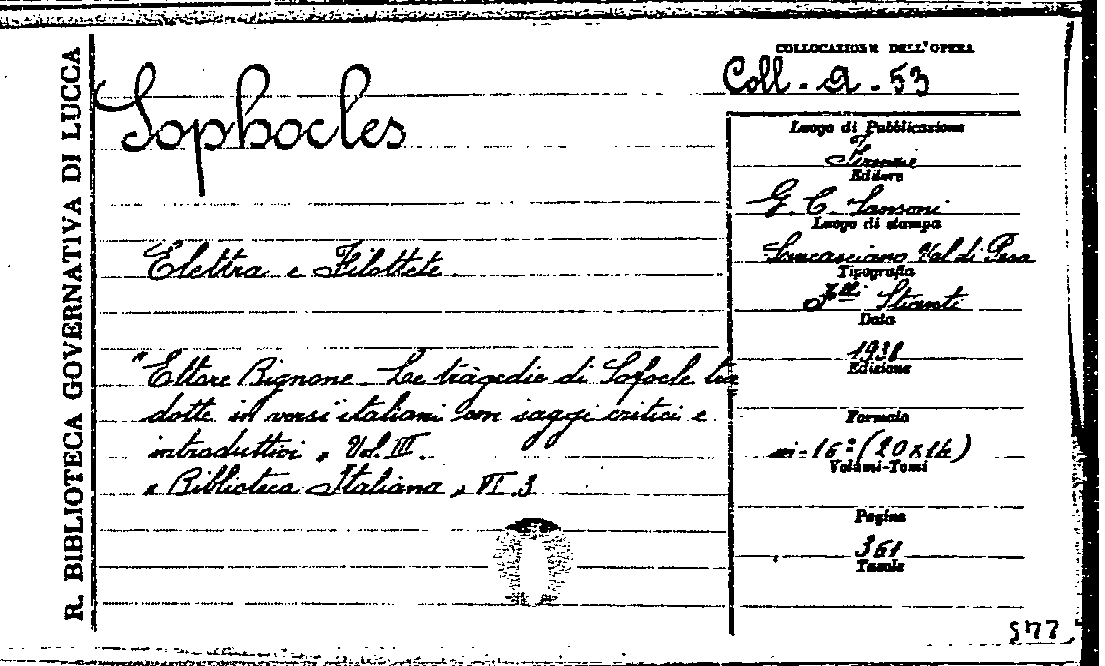 R. BIBLIOTECA GOVERNATIVA DI LUCCA
Sophocles
Elettra e Filottete
"Ettore Bignone - Le tragedie di Sofocle tra
dotte in versi italiani con saggi critici e
introduttivi " Vol. III.
" Biblioteca Italiana " VI. 3
COLLOCAZIONE DELL'OPERA
Coll. - a - 53
Luogo di Pubblicazione
Firenze
Editore
G. C. Sansoni
Luogo di stampa
Sancasciano Val di Pesa
Tipografia
F.lli Stianti
Data
1938
Edizione
Formato
in-16° (20x14)
Volumi-Tomi
Pagine
361
Tavole
5177